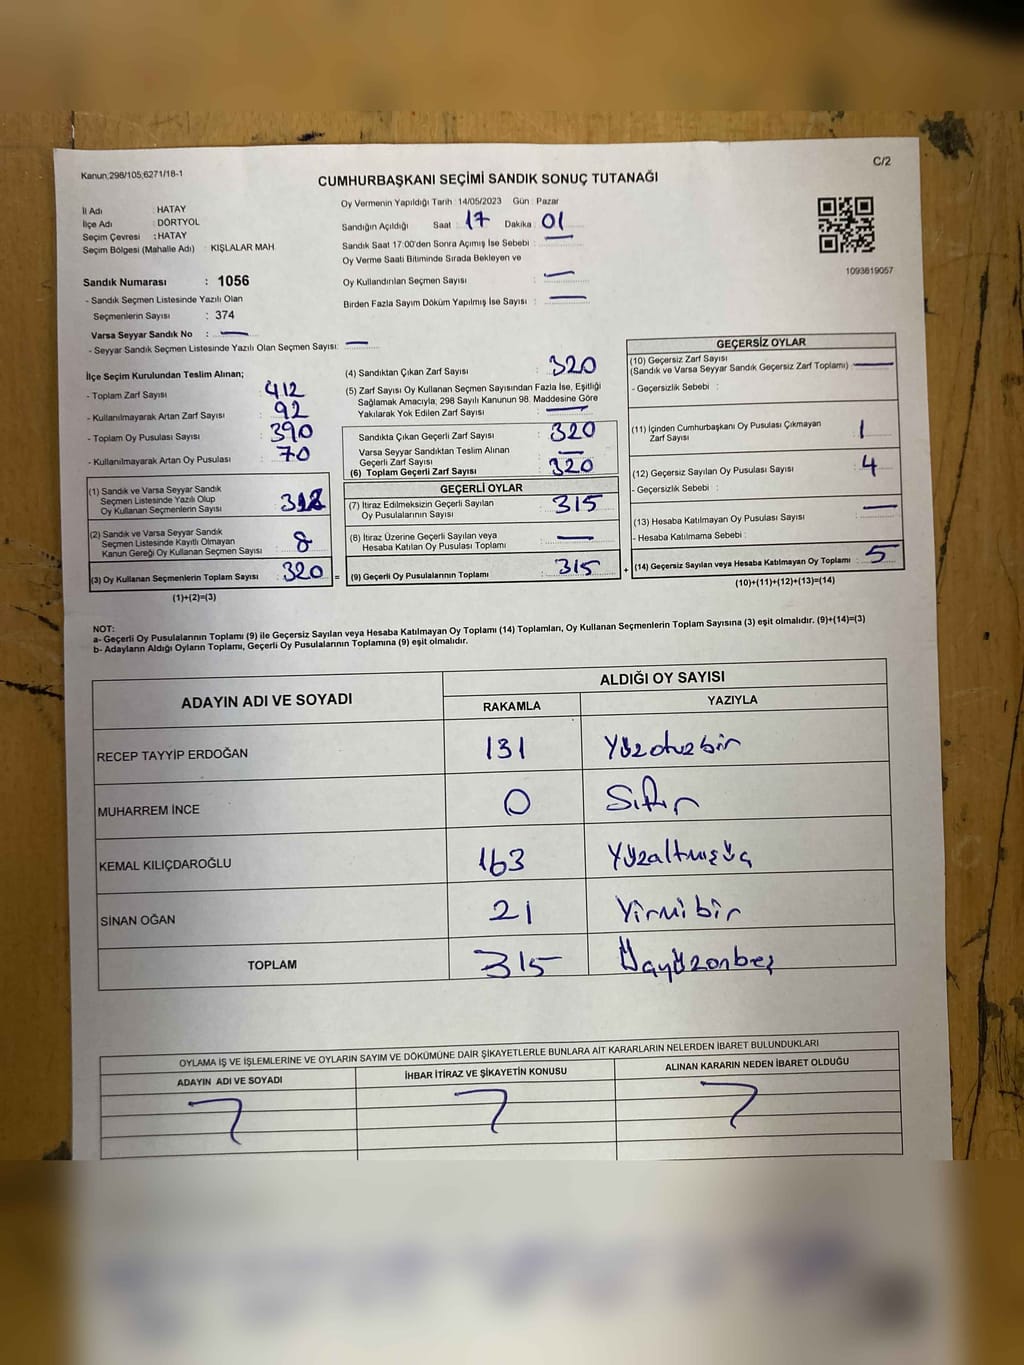 Kanun;298/105;6271/18-1
C/2
CUMHURBAŞKANI SEÇİMİ SANDIK SONUÇ TUTANAĞI
İl Adı : HATAY
İlçe Adı : DÖRTYOL
Seçim Çevresi : HATAY
Seçim Bölgesi (Mahalle Adı) : KIŞLALAR MAH.
Sandık Numarası : 1056
- Sandık Seçmen Listesinde Yazılı Olan
Seçmenlerin Sayısı : 374
Varsa Seyyar Sandık No : —
- Seyyar Sandık Seçmen Listesinde Yazılı Olan Seçmen Sayısı: —
Oy Vermenin Yapıldığı Tarih : 14/05/2023 Gün : Pazar
Sandığın Açıldığı Saat : 17 Dakika : 01
Sandık Saat 17:00'den Sonra Açımış İse Sebebi : —
Oy Verme Saati Bitiminde Sırada Bekleyen ve
Oy Kullandırılan Seçmen Sayısı : —
Birden Fazla Sayım Döküm Yapılmış İse Sayısı : —
1093819057
İlçe Seçim Kurulundan Teslim Alınan;
- Toplam Zarf Sayısı : 412
- Kullanılmayarak Artan Zarf Sayısı : 92
- Toplam Oy Pusulası Sayısı : 390
- Kullanılmayarak Artan Oy Pusulası : 70
(1) Sandık ve Varsa Seyyar Sandık
Seçmen Listesinde Yazılı Olup
Oy Kullanan Seçmenlerin Sayısı : 312
(2) Sandık ve Varsa Seyyar Sandık
Seçmen Listesinde Kayıtlı Olmayan
Kanun Gereği Oy Kullanan Seçmen Sayısı : 8
(3) Oy Kullanan Seçmenlerin Toplam Sayısı : 320
(1)+(2)=(3)
(4) Sandıktan Çıkan Zarf Sayısı : 320
(5) Zarf Sayısı Oy Kullanan Seçmen Sayısından Fazla İse, Eşitliği
Sağlamak Amacıyla, 298 Sayılı Kanunun 98. Maddesine Göre
Yakılarak Yok Edilen Zarf Sayısı : —
Sandıkta Çıkan Geçerli Zarf Sayısı : 320
Varsa Seyyar Sandıktan Teslim Alınan
Geçerli Zarf Sayısı : —
(6) Toplam Geçerli Zarf Sayısı : 320
GEÇERLİ OYLAR
(7) İtiraz Edilmeksizin Geçerli Sayılan
Oy Pusulalarının Sayısı : 315
(8) İtiraz Üzerine Geçerli Sayılan veya
Hesaba Katılan Oy Pusulası Toplamı : —
= (9) Geçerli Oy Pusulalarının Toplamı : 315
GEÇERSİZ OYLAR
(10) Geçersiz Zarf Sayısı
(Sandık ve Varsa Seyyar Sandık Geçersiz Zarf Toplamı) : —
- Geçersizlik Sebebi :
(11) İçinden Cumhurbaşkanı Oy Pusulası Çıkmayan
Zarf Sayısı : 1
(12) Geçersiz Sayılan Oy Pusulası Sayısı : 4
- Geçersizlik Sebebi :
(13) Hesaba Katılmayan Oy Pusulası Sayısı : —
- Hesaba Katılmama Sebebi :
+ (14) Geçersiz Sayılan veya Hesaba Katılmayan Oy Toplamı : 5
(10)+(11)+(12)+(13)=(14)
NOT:
a- Geçerli Oy Pusulalarının Toplamı (9) ile Geçersiz Sayılan veya Hesaba Katılmayan Oy Toplamı (14) Toplamları, Oy Kullanan Seçmenlerin Toplam Sayısına (3) eşit olmalıdır. (9)+(14)=(3)
b- Adayların Aldığı Oyların Toplamı, Geçerli Oy Pusulalarının Toplamına (9) eşit olmalıdır.
ADAYIN ADI VE SOYADI ALDIĞI OY SAYISI
RAKAMLA YAZIYLA
RECEP TAYYİP ERDOĞAN 131 Yüzotuzbir
MUHARREM İNCE 0 Sıfır
KEMAL KILIÇDAROĞLU 163 Yüzaltmışüç
SİNAN OĞAN 21 Yirmibir
TOPLAM 315 Üçyüzonbeş
OYLAMA İŞ VE İŞLEMLERİNE VE OYLARIN SAYIM VE DÖKÜMÜNE DAİR ŞİKAYETLERLE BUNLARA AİT KARARLARIN NELERDEN İBARET BULUNDUKLARI
ADAYIN ADI VE SOYADI İHBAR İTİRAZ VE ŞİKAYETİN KONUSU ALINAN KARARIN NEDEN İBARET OLDUĞU